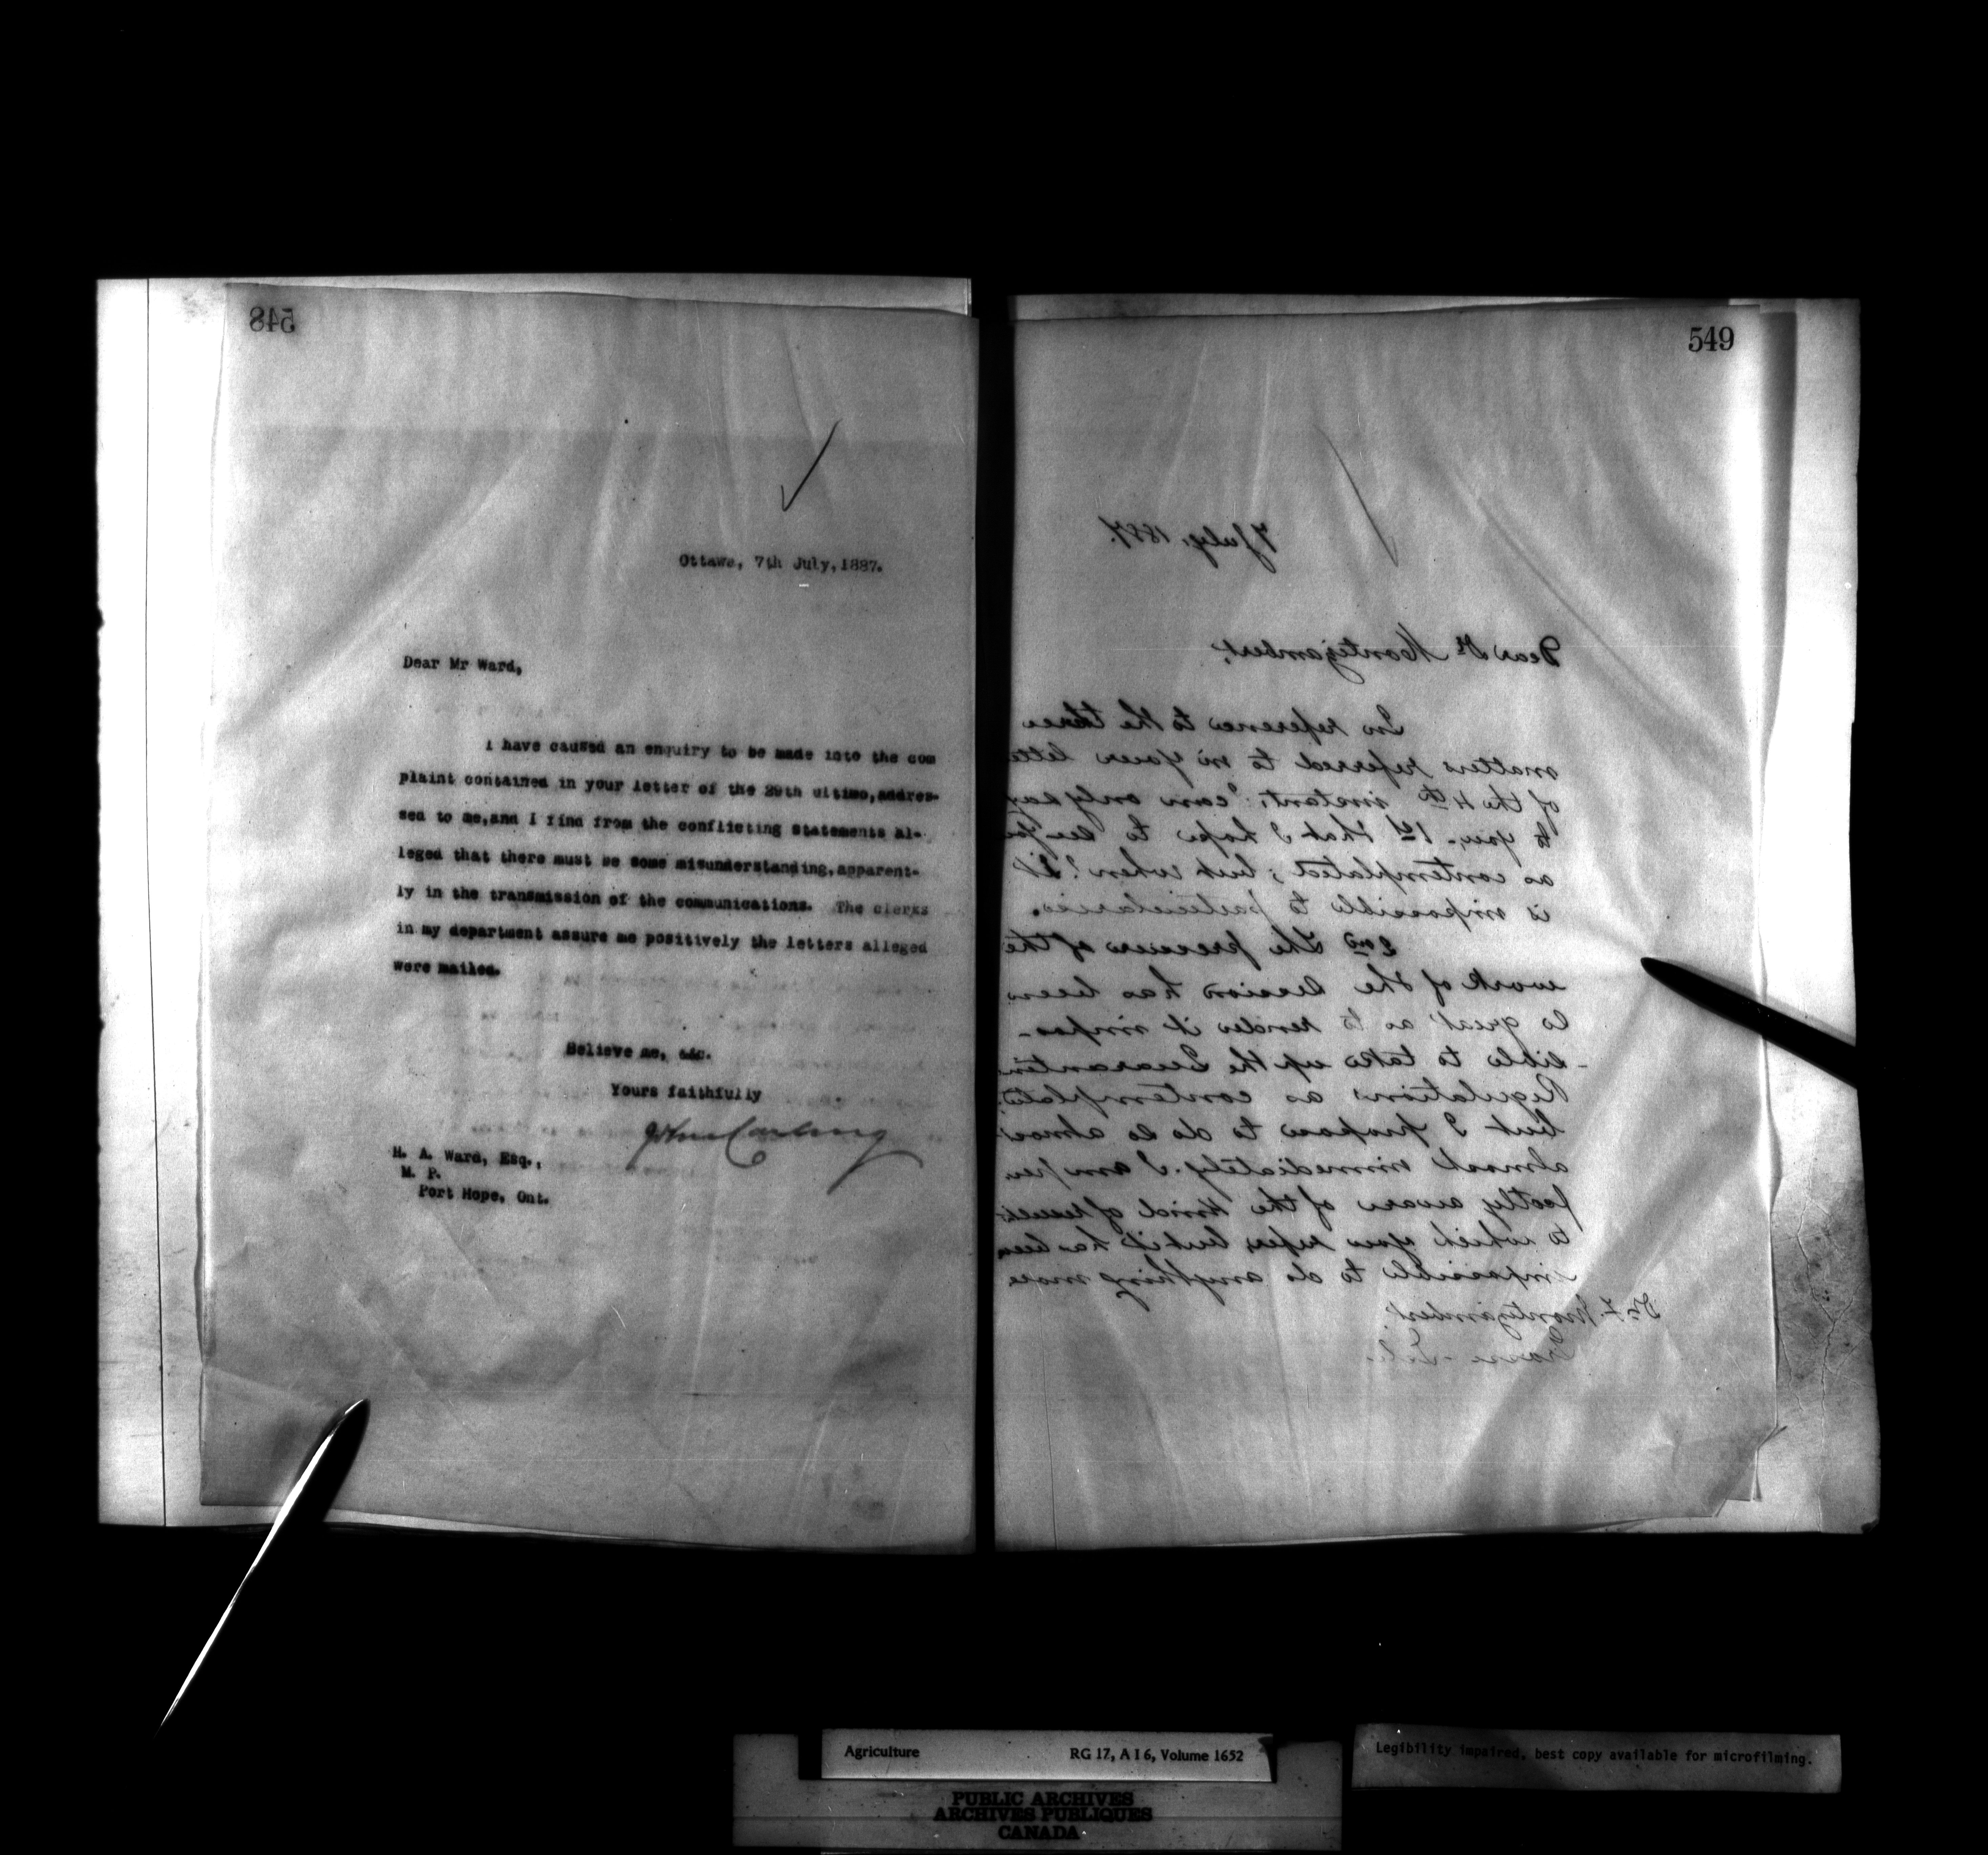 548
Ottawa, 7th July, 1887.
Dear Mr Ward,
I have caused an enquiry to be made into the com
plaint contained in your letter of the 29th ultimo, addres-
sed to me, and I find from the conflicting statements al-
leged that there must be some misunderstanding, apparent-
ly in the transmission of the communications. The clerks
in my department assure me positively the letters alleged
were mailed.
Believe me, &c.
Yours faithfully
John Carling
H. A. Ward, Esq.,
M. P.
Port Hope, Ont.
549
7 July, 1887.
Dear Dr Montizambert,
In reference to the three
matters referred to in your lette
of the 4th instant, I can only say
to you - 1st that I hope to see you
as contemplated; but when? it
is impossible to particularise.
2nd The pressure of the
work of the Session has been
so great as to render it impos-
-sible to take up the Quarantin
Regulations as contemplated
but I propose to do so almos
almost immediately. I am per
fectly aware of the kind of
to which you refer, but it has been
impossible to do anything more
Dr F. Montizambert
Grosse-Isle
Agriculture RG 17, A I 6, Volume 1652
PUBLIC ARCHIVES
ARCHIVES PUBLIQUES
CANADA
Legibility impaired, best copy available for microfilming.